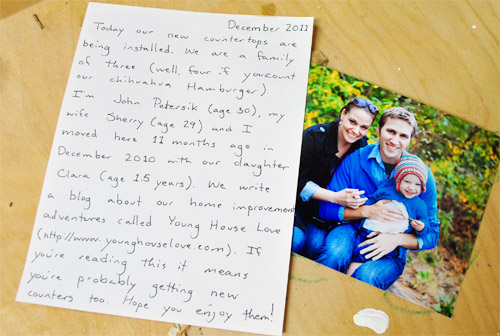 December 2011
Today our new countertops are
being installed. We are a family
of three (well, four if you count
our chihuahua Hamburger)
I'm John Petersik (age 30), my
wife Sherry (age 29) and I
moved here 11 months ago in
December 2010 with our daughter
Clara (age 1.5 years). We write
a blog about our home improvement
adventures called Young House Love
(http://www.younghouselove.com). If
you're reading this it means
you're probably getting new
counters too. Hope you enjoy them!